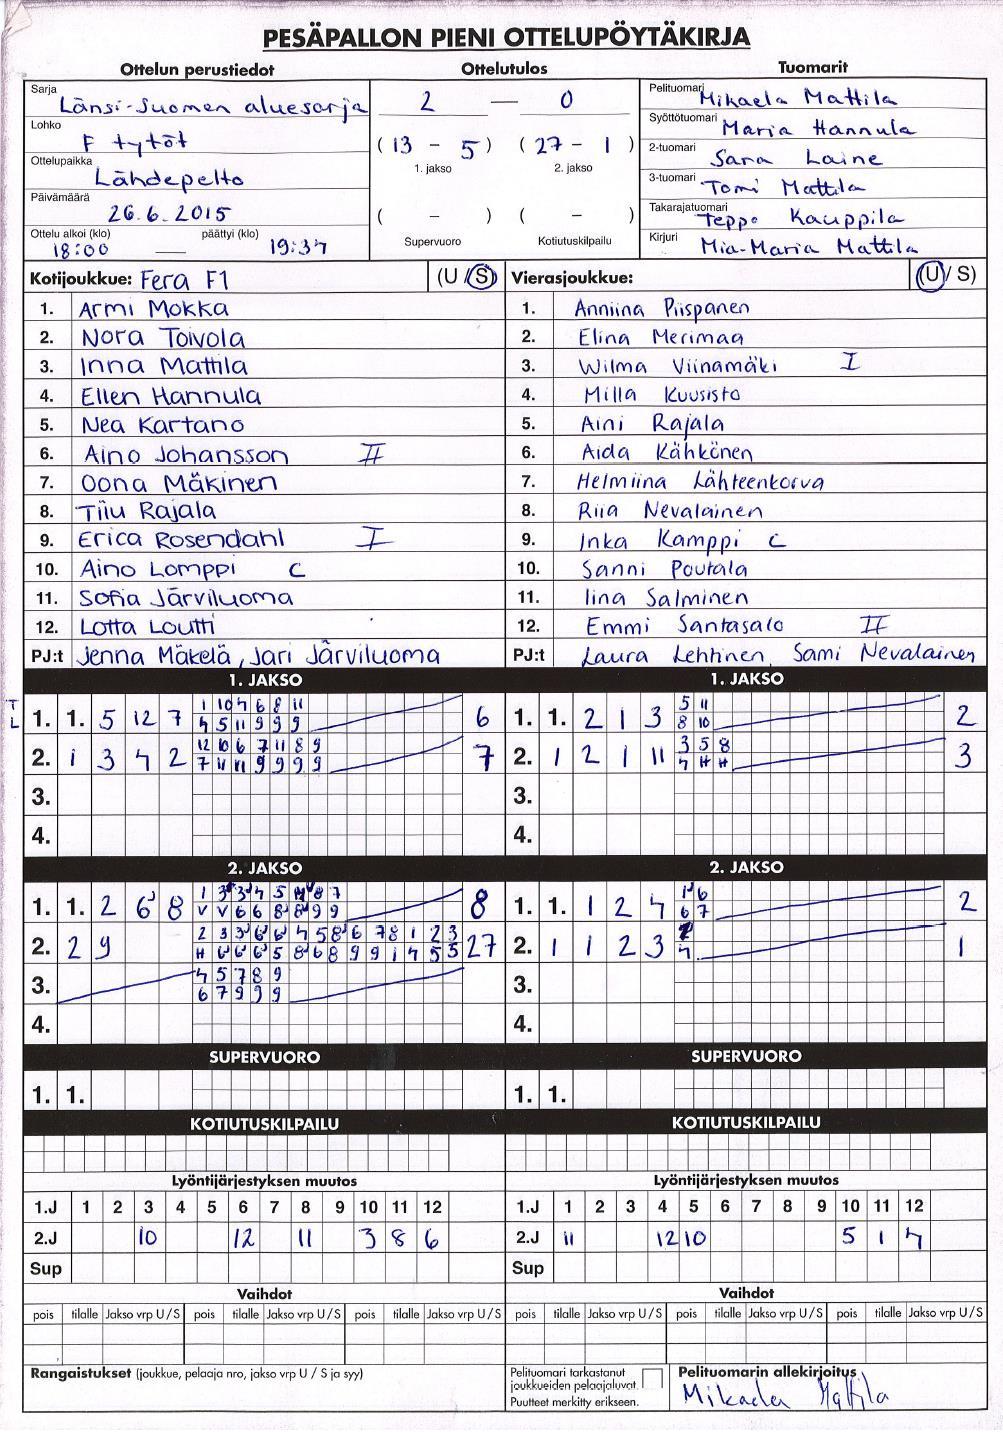 PESÄPALLON PIENI OTTELUPÖYTÄKIRJA
Ottelun perustiedot
Ottelutulos
Tuomarit
Sarja Länsi-Suomen aluesarja
Lohko F tytöt
Ottelupaikka Lähdepelto
Päivämäärä 26.6.2015
Ottelu alkoi (klo) päättyi (klo)
18:00 — 19:37
2 — 0
( 13 - 5 ) ( 27 - 1 )
1. jakso 2. jakso
( - ) ( - )
Supervuoro Kotiutuskilpailu
Pelituomari Mikaela Mattila
Syöttötuomari Maria Hannula
2-tuomari Sara Laine
3-tuomari Tomi Mattila
Takarajatuomari Teppo Kauppila
Kirjuri Mia-Maria Mattila
Kotijoukkue: Fera F1 (U / S)
1. Armi Mokka
2. Nora Toivola
3. Inna Mattila
4. Ellen Hannula
5. Nea Kartano
6. Aino Johansson II
7. Oona Mäkinen
8. Tiiu Rajala
9. Erica Rosendahl I
10. Aino Lomppi C
11. Sofia Järviluoma
12. Lotta Loutti
PJ:t Jenna Mäkelä, Jari Järviluoma
Vierasjoukkue: (U / S)
1. Anniina Piispanen
2. Elina Merimaa
3. Wilma Viinamäki I
4. Milla Kuusisto
5. Aini Rajala
6. Aida Kähkönen
7. Helmiina Lähteenkorva
8. Riia Nevalainen
9. Inka Kamppi C
10. Sanni Poutala
11. Iina Salminen
12. Emmi Santasalo II
PJ:t Laura Lehtinen, Sami Nevalainen
1. JAKSO
T L
1. 1. 5 12 7 6
2. 1 3 4 2 7
3.
4.
1. JAKSO
1. 1. 2 1 3 2
5 11
8 10
2. 1 2 1 11 3
3 5 8
3.
4.
2. JAKSO
1. 1. 2 6 8 8
2. 2 9 27
3.
4 5 7 8 9
6 7 9 9 9
4.
2. JAKSO
1. 1. 1 2 4 2
2. 1 1 2 3 1
3.
4.
SUPERVUORO
1. 1.
SUPERVUORO
1. 1.
KOTIUTUSKILPAILU
KOTIUTUSKILPAILU
Lyöntijärjestyksen muutos
1.J 1 2 3 4 5 6 7 8 9 10 11 12
2.J 10 12 11 3 8 6
Sup
Lyöntijärjestyksen muutos
1.J 1 2 3 4 5 6 7 8 9 10 11 12
2.J 11 12 10 5 1 4
Sup
Vaihdot
pois tilalle Jakso vrp U / S pois tilalle Jakso vrp U / S pois tilalle Jakso vrp U / S
Vaihdot
pois tilalle Jakso vrp U / S pois tilalle Jakso vrp U / S pois tilalle Jakso vrp U / S
Rangaistukset (joukkue, pelaaja nro, jakso vrp U / S ja syy)
Pelituomari tarkastanut
joukkueiden pelaajaluvat.
Puutteet merkitty erikseen.
Pelituomarin allekirjoitus
Mikaela Mattila